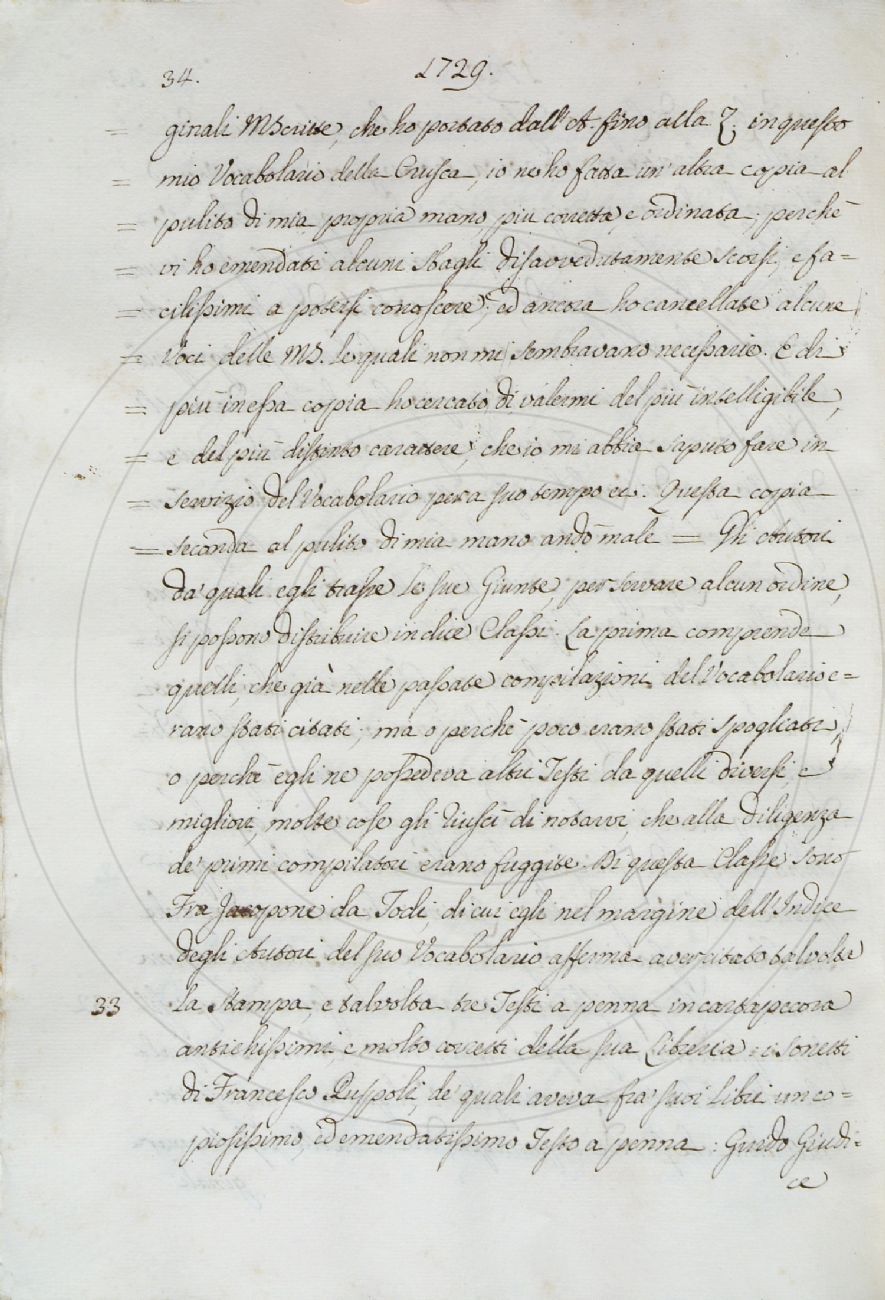 34.
1729.
= ginali MScritte, che ho portato dall'A. fino alla Z. in questo
= mio Vocabolario della Crusca, io ne ho fatta un'altra copia al
= pulito di mia propria mano più corretta, e ordinata; perchè
= vi ho emendati alcuni sbagli disavvedutamente scorsi, e fa=
= cilissimi a potersi conoscere; ed ancora ho cancellate alcune
= Voci delle MS. le quali non mi sembravano necessarie. E di
= più in essa copia ho cercato di valermi del più intelligibile,
= e del più distinto carattere, che io mi abbia saputo fare in
= servizio del Vocabolario per a suo tempo ec. Questa copia
= seconda al pulito di mia mano andò male = Gli Autori
da' quali egli trasse le sue Giunte, per servare alcun ordine,
si possono distribuire in dice Classi. La prima comprende
quelli, che già nelle passate compilazioni del Vocabolario e=
rano stati citati; ma o perchè poco erano stati spogliati,
o perchè egli ne possedeva altri Testi da quelli diversi, e
migliori, molte cose gli riuscì di notarvi, che alla diligenza
de' primi compilatori erano fuggite. Di questa Classe sono
Fra Jacopone da Todi, di cui egli nel margine dell'Indice
degli Autori del suo Vocabolario afferma aver citato talvolta
33 la Stampa e talvolta tre Testi a penna in cartapecora
antichissimi, e molto corretti della sua Libreria: i Sonetti
di Francesco Ruspoli, de' quali aveva fra' suoi Libri un co=
piosissimo, ed emendatissimo Testo a penna: Guido Giudi=
ce